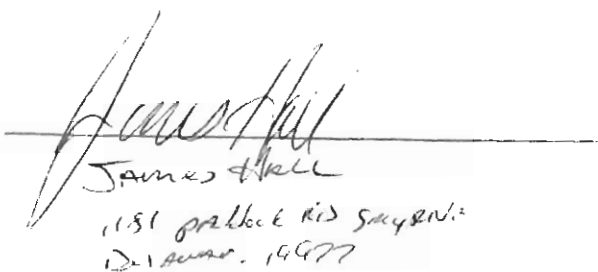 James Hall
James Hall
1181 paddock Rd Smyrna
Delaware. 19977